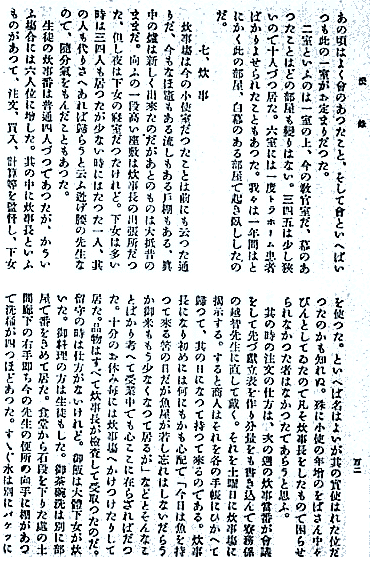 あの頃はよく會のあつたこと、そして會といへばい
つも此の一室がお定まりだつた。
二室といふのは一室の上、今の教官室だ、幕のあ
つたことはどの部屋も變りはない。三四五は少し狹
いので十人づつ居た。六室には一度トラホーム患者
ばかりよせられたこともあつた。我々は一年間はと
にかく此の部屋、白幕のある部屋で起き臥ししたの
だ。
七、炊事
炊事場は今の小使室だつたことは前にも云つた通
りだ、今もなほ竈もある流しもある戸棚もある、眞
中の爐は新しく出來たのだがあとのものは大抵昔の
まゝだ。向ふの一段高い座敷は炊事長の出張所だつ
た、但し夜は下女の寢室だつたけれど。下女は多い
時は三四人も居たが少ない時にはたつた一人、其
の人も代りさへあれば歸らうと云ふ逃げ腰の先生な
ので、隨分氣をもんだこともあつた。
生徒の炊事番は普通四人づつであつたが、かうい
ふ場合には六人位に增した。其の中に炊事長といふ
ものがあつて、注文、買入、計算等を監督し、下女
を使つた。といへば名はよいが其の實使はれた位だ
つたのかも知れぬ。殊に小使のをばさん中々
ぴんとしてゐたので凡を炊事長をしたもので困らせ
られなかつた者はなかつたであらうと思ふ。
其の時の注文の仕方は、次の週の炊事當番が會議
をして先づ獻立表を作り分量をも書き込んで寮務係
の越智先生に直して戴く。それを土曜日に炊事場に
揭示する。すると商人はそれを各の手帳にひかへて
歸つて、其の日になつて持つて來るのである。炊事
長になり初めには何にもかも心配で「今日は魚を持
つて來る筈の日だが魚屋が若し忘れはしないだらう
か御米ももう少なくなつて居るが」などとそんなこ
とばかり考へて受業中でも心こゝに在らざればだつ
た。十分のお休み每には炊事場へかけつけたりして
居た。品物はすべて炊事長が檢査して受取つたのだ。
留守の時は仕方がないけれど。御飯は大體下女が炊
いた。御料理の方は生徒もした。御茶碗洗は別に部
屋で番をきめて居た。食堂から石段を下りた處の土
間廊下の右手卽ち今の先生の便所の向手に棚があつ
て洗桶が四つほどあつた。すゝぐ水は別にバケツに